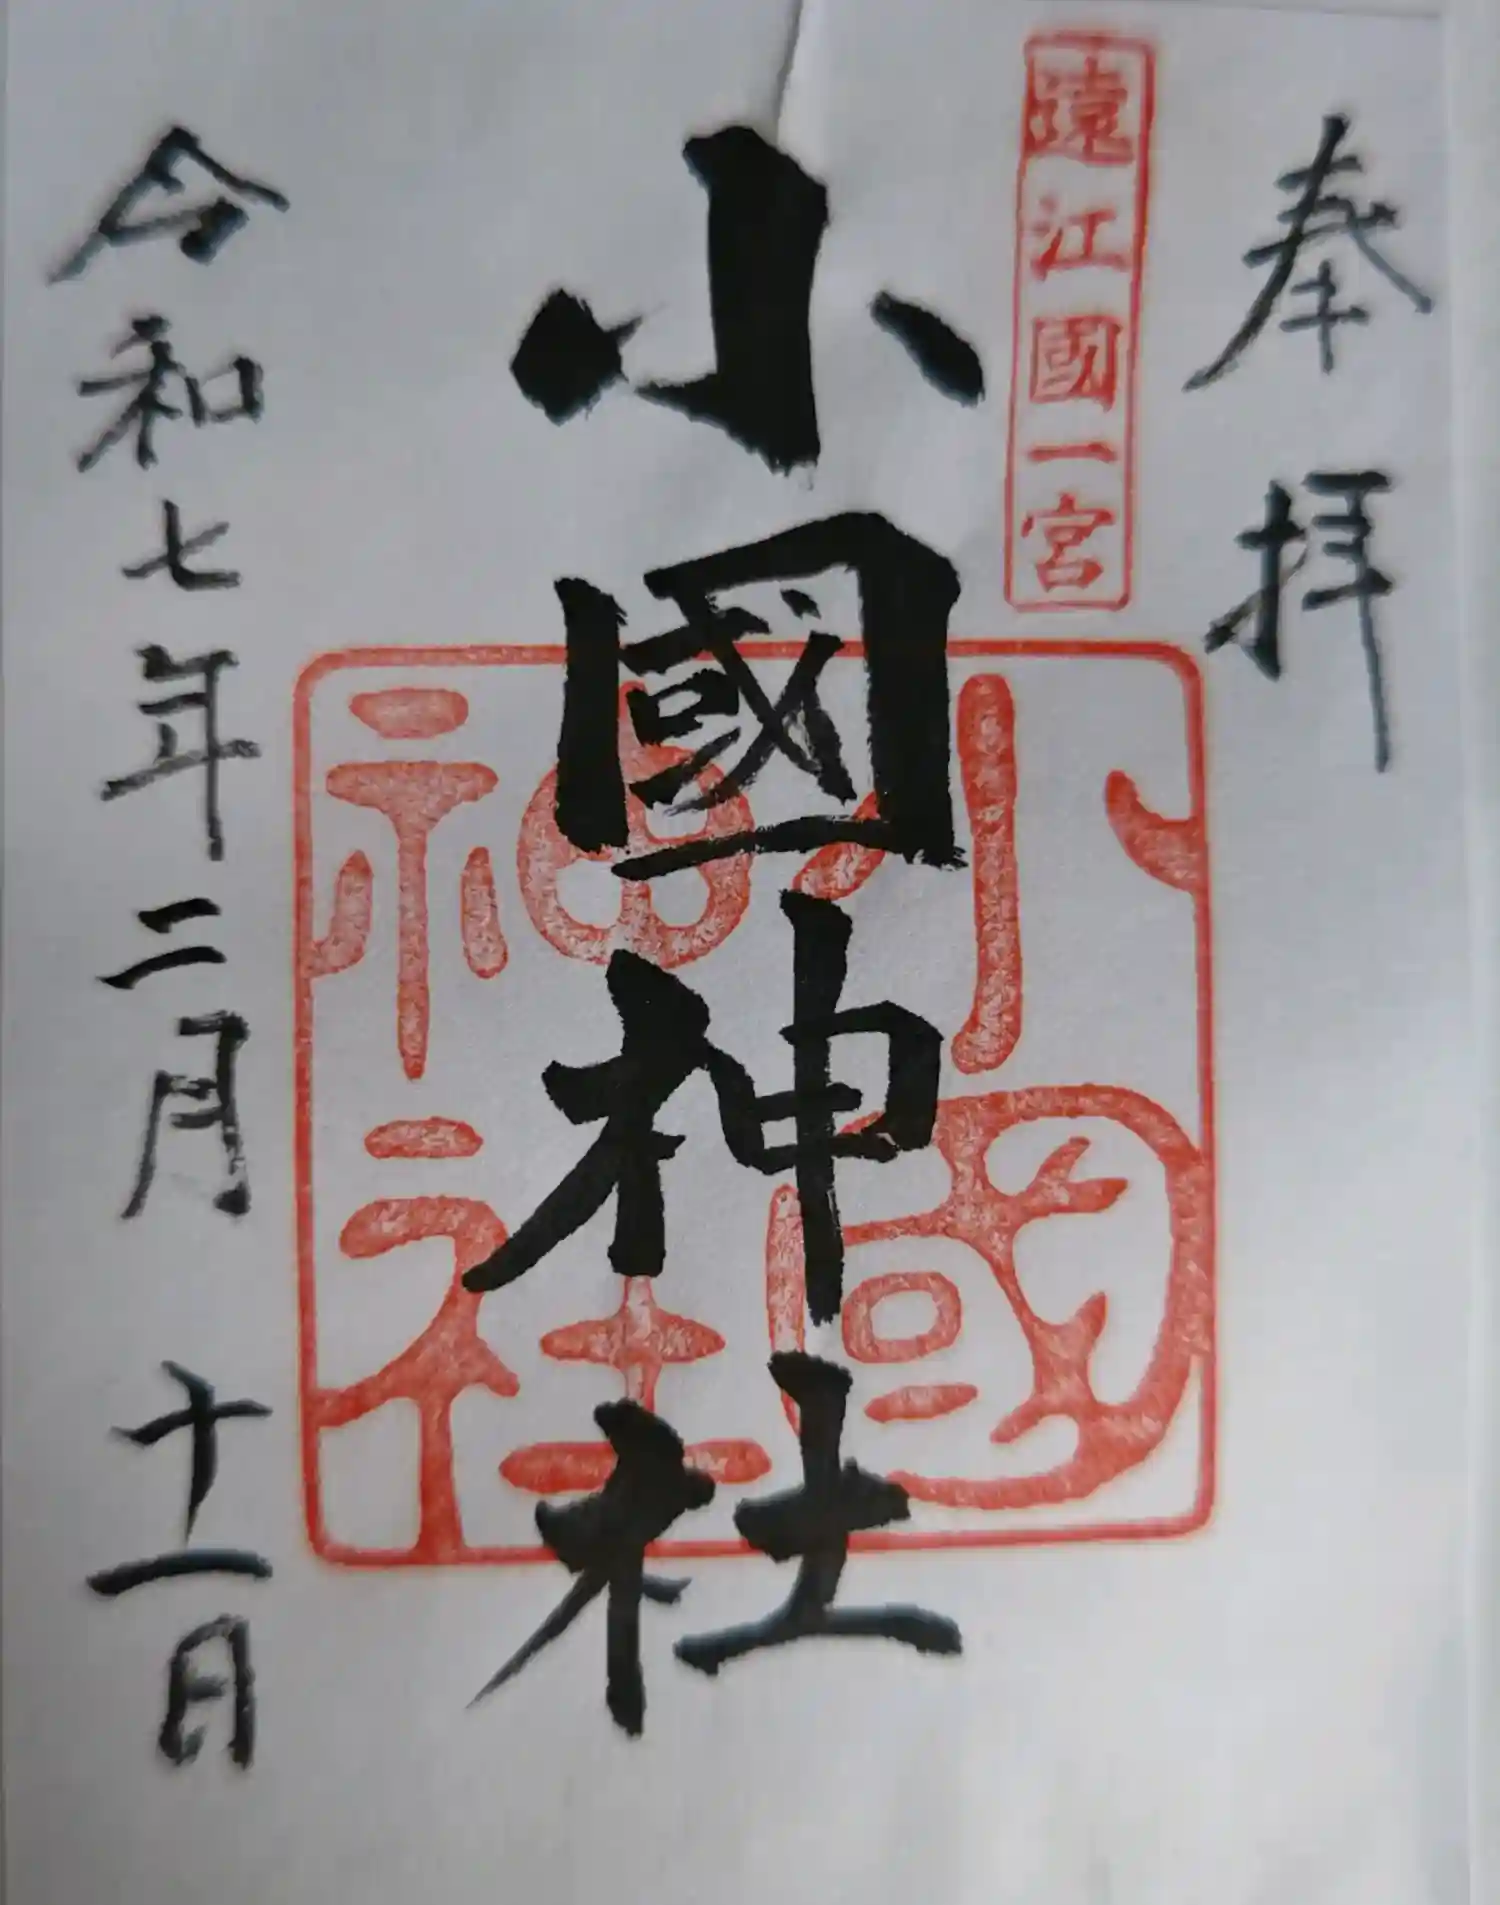 奉拝
遠江國一宮
小國神社
小國
神社
令和七年二月十一日